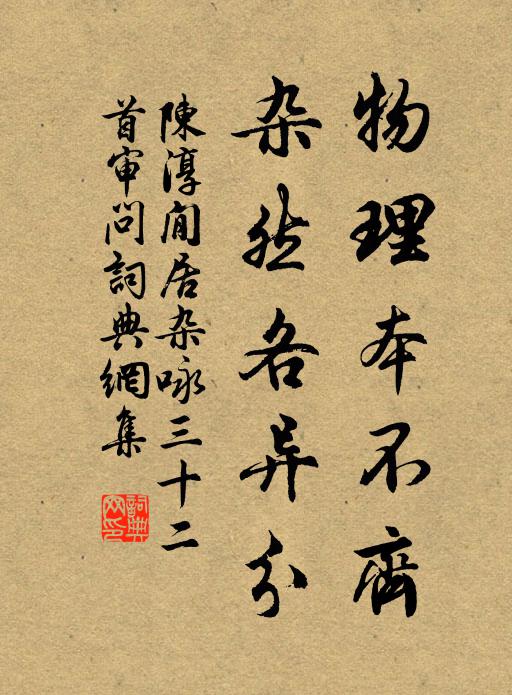 物理本不齊
杂然各异分
陳淳閒居杂咏三十二
首审問詞典網集
詞典
网印